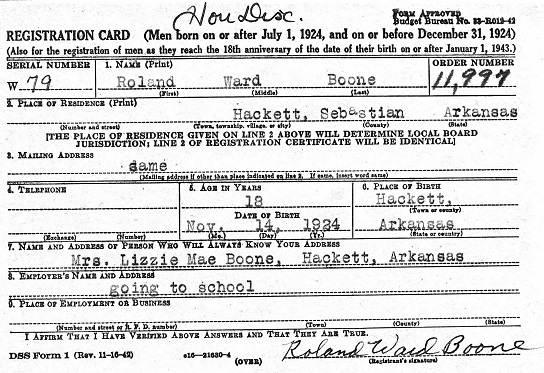 Hon Disc.
FORM APPROVED
Budget Bureau No. 33-R012-42
REGISTRATION CARD (Men born on or after July 1, 1924, and on or before December 31, 1924)
(Also for the registration of men as they reach the 18th anniversary of the date of their birth on or after January 1, 1943.)
SERIAL NUMBER 1. NAME (Print) ORDER NUMBER
W 79 Roland Ward Boone 11,997
(First) (Middle) (Last)
2. PLACE OF RESIDENCE (Print)
Hackett, Sebastian Arkansas
(Number and street) (Town, township, village, or city) (County) (State)
[THE PLACE OF RESIDENCE GIVEN ON LINE 2 ABOVE WILL DETERMINE LOCAL BOARD
JURISDICTION; LINE 2 OF REGISTRATION CERTIFICATE WILL BE IDENTICAL]
3. MAILING ADDRESS
dame
(Mailing address if other than place indicated on line 2. If same, insert word same)
4. TELEPHONE 5. AGE IN YEARS 6. PLACE OF BIRTH
18 Hackett,
(Town or county)
DATE OF BIRTH
Nov. 14, 1924 Arkansas
(Exchange) (Number) (Mo.) (Day) (Yr.) (State or country)
7. NAME AND ADDRESS OF PERSON WHO WILL ALWAYS KNOW YOUR ADDRESS
Mrs. Lizzie Mae Boone, Hackett, Arkansas
8. EMPLOYER'S NAME AND ADDRESS
going to school
9. PLACE OF EMPLOYMENT OR BUSINESS
(Number and street or R. F. D. number) (Town) (County) (State)
I AFFIRM THAT I HAVE VERIFIED ABOVE ANSWERS AND THAT THEY ARE TRUE.
DSS Form 1 (Rev. 11-16-42) c16—21630-4 (OVER) Roland Ward Boone
(Registrant's signature)